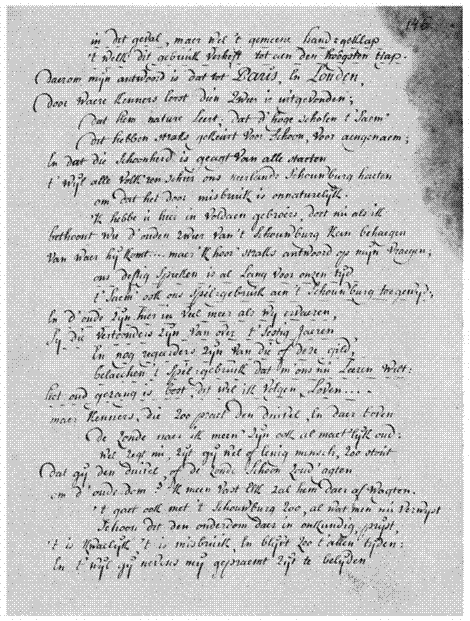 146
in dit geval, maer wel 't gemeene hand=geklap
't welk dit gebruik verheft tot aen den hoogsten trap.
Daerom mijn antwoord is dat tot Paris, en Londen,
door waere kenners eerst dien zwier is uitgevonden;
dat hem nature leert, dat d'hoge scholen t'saem
dit hebben straks gekeurt voor schoon, voor aengenaem;
En dat die schoonheid is geagt van alle staeten
t'wijl alle volk'ren schier ons neerlands schouwburg haeten
om dat het door misbruik is onnaturelijk.
'k hebbe u hier in voldaen gebroers, dort nu als ik
bethoont wie d'ouden zwier van 't schouwburg kan behaegen
van waer hy komt... maer 'k hoor straks antwoord op mijn vraegen;
ons deftig spreken is al lang voor onzen tijd
t'saem ook ons spel=gebruik aen 't schouwburg toegewijd;
En d'oude zijn hier in veel meer als wy ervaeren,
Sy die vertoonders zijn van over t'sestig jaeren
En nog regeerders zijn van die of deze gild
belacchen 't spel=gebruik dat m'ons nu leeren wilt:
het oud gezang is best, dit wil ik volgen, loven....
maer kenners, die zoo praet den duivel, en daer boven
de zonde naer ik meen zijn ook al maetlijk oud:
wel zegt my, zijt gy wel of eenig mensch, zoo stout
dat gy den duivel of de zonde schoon zoud' agten
om d'ouderdom? 'k meen vast elk zal hem daer af wagten.
't gaet ook met 't schouwburg zoo, al wat men nu verwyst
schoon dit den ouderdom daer in onkundig, prijst,
't is kwaelijk 't is misbruik, en blijft zoo t'allen tijden:
En t'wijl gy nevens my gepraemt zijt te belyden